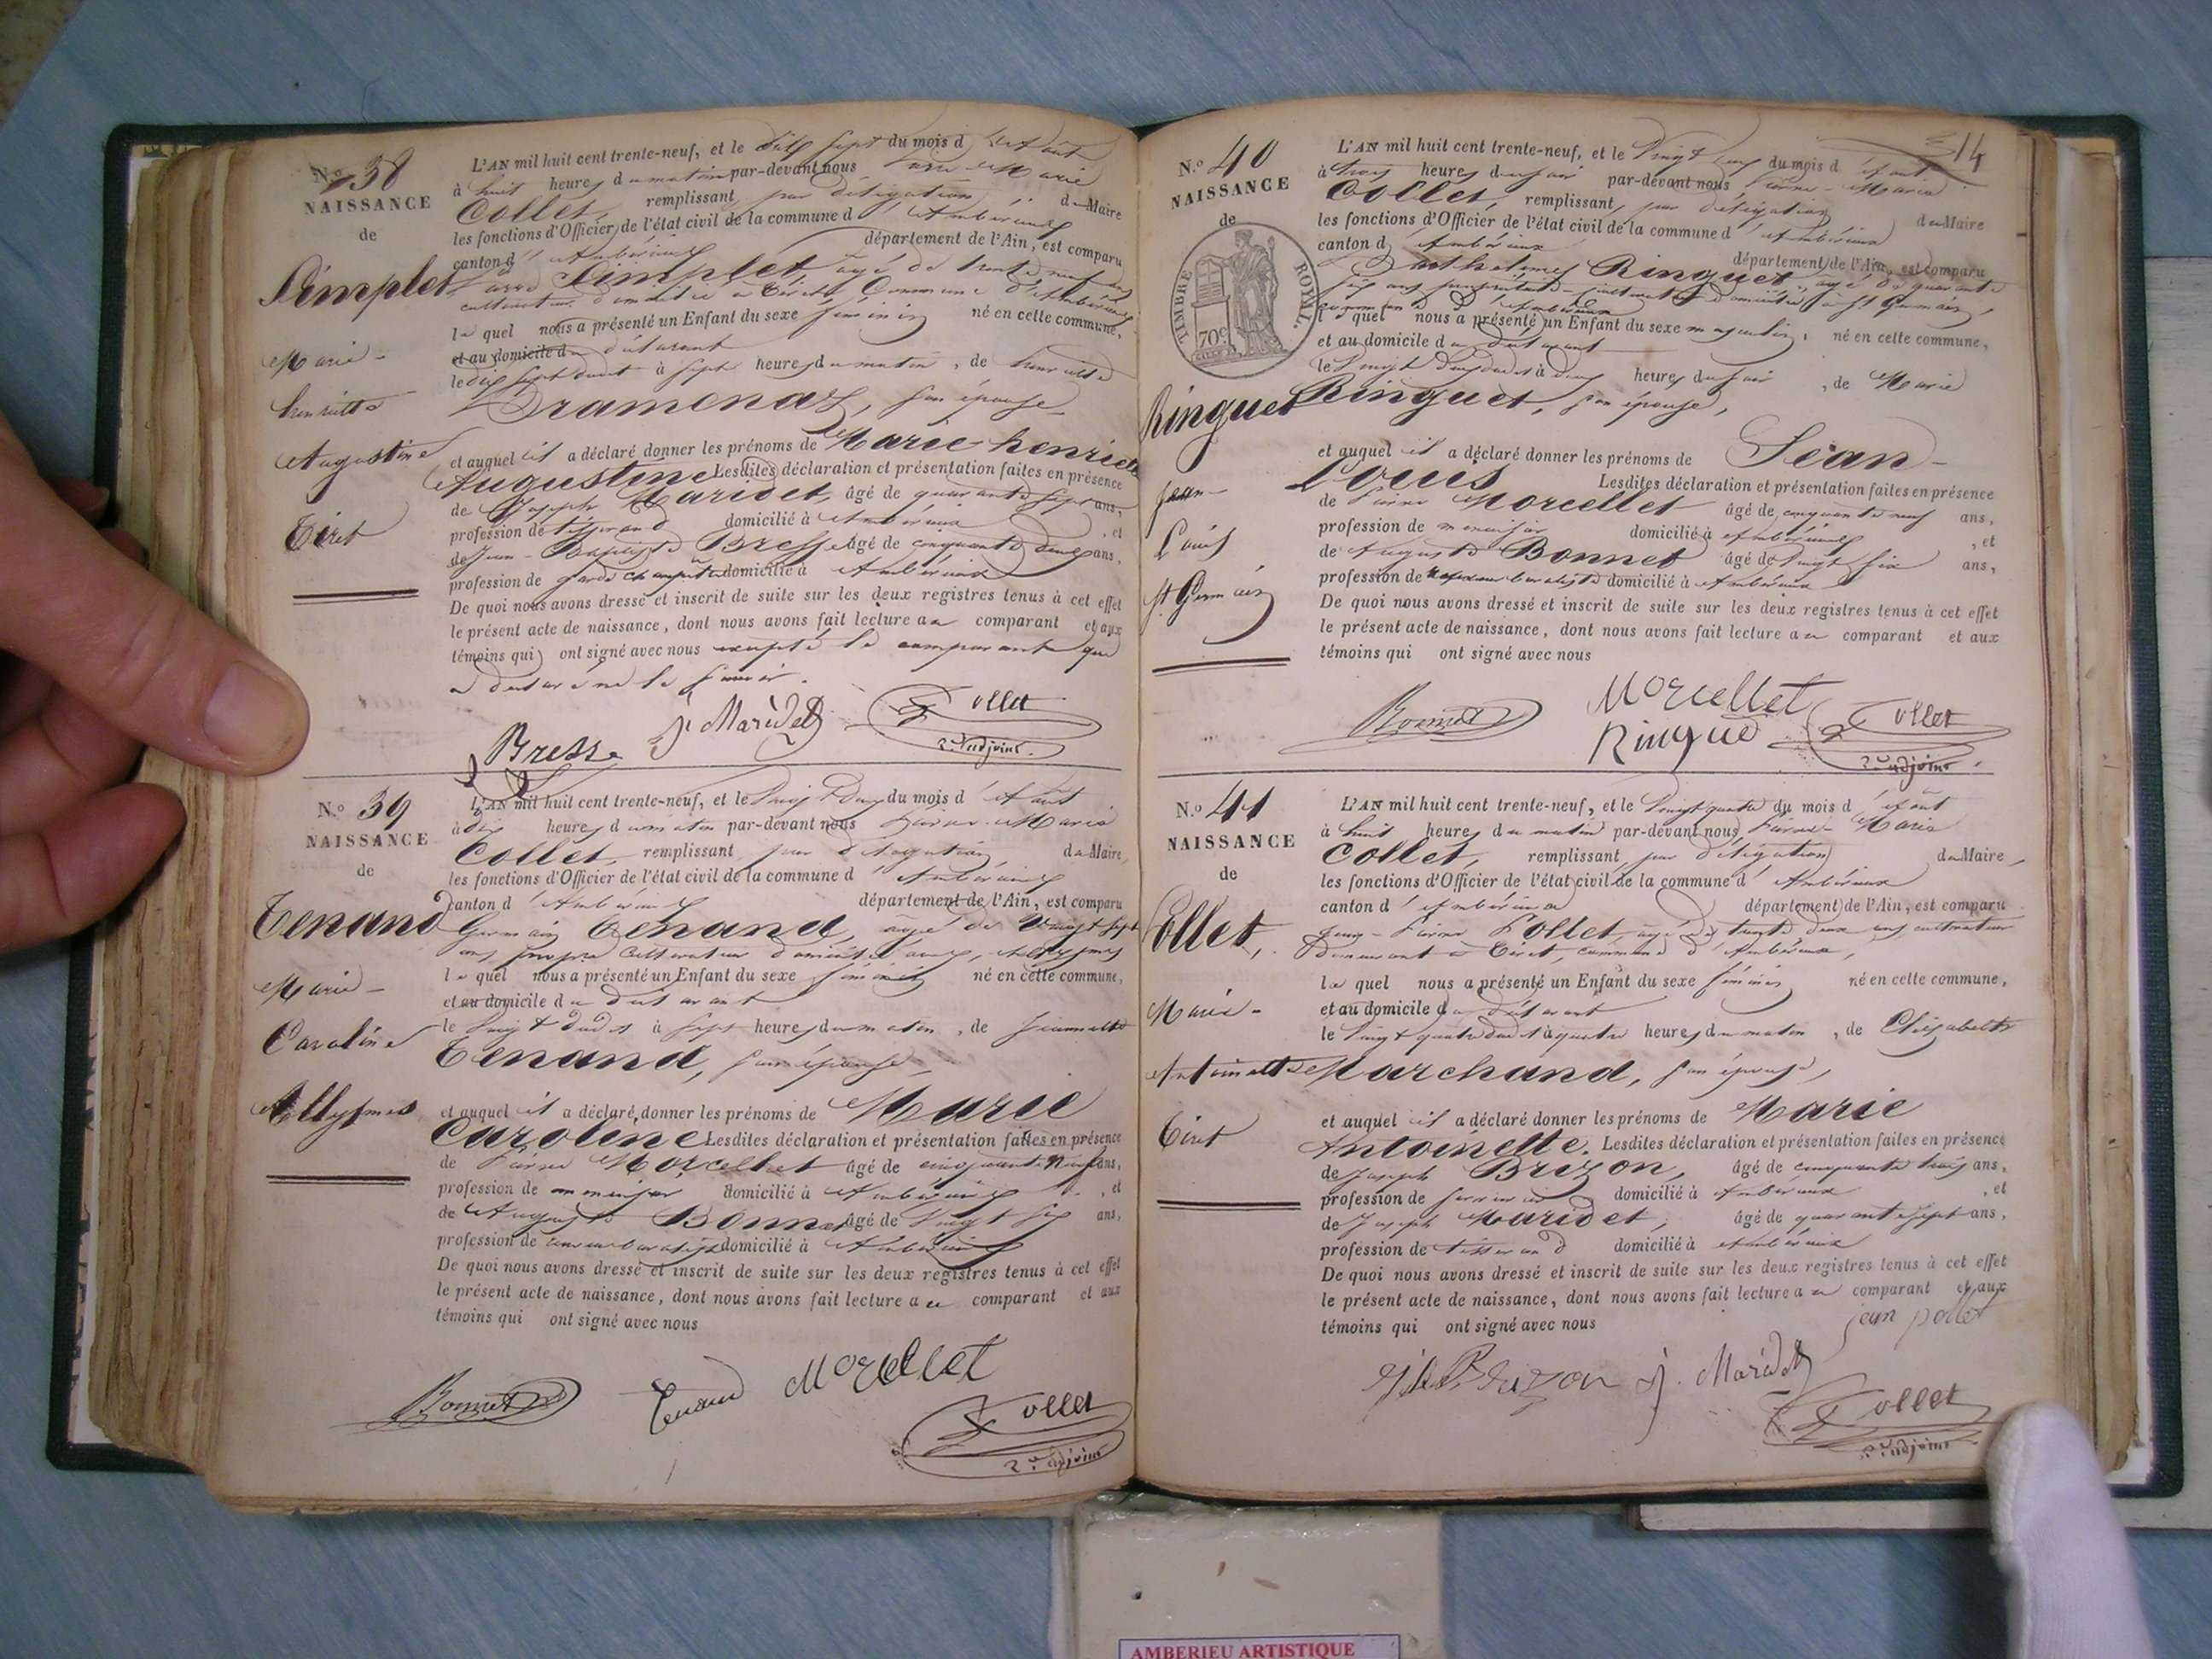 N.º 38
NAISSANCE
de
Simplet
Marie -
henriette
Augustine
Tiret
L'AN mil huit cent trente-neuf, et le dix sept du mois d'août
à huit heures du matin par-devant nous Pierre-Marie
Collet, remplissant par délégation du Maire
les fonctions d'Officier de l'état civil de la commune d'Ambérieux
canton d'Ambérieux département de l'Ain, est comparu
Simplet, âgé de trente neuf ans
cultivateur domicilié à Tiret Commune d'Ambérieux
lequel nous a présenté un Enfant du sexe féminin né en cette commune,
et au domicile du déclarant
le dix sept dudit à sept heures du matin, de henriette
Dramenas, son épouse
et auquel il a déclaré donner les prénoms de Marie-henriette
Augustine Lesdites déclaration et présentation faites en présence
de Joseph Maridet, âgé de quarante sept ans,
profession de tisserand domicilié à Ambérieux, et
de Jean-Baptiste Bresse âgé de cinquante deux ans,
profession de garde champêtre domicilié à Ambérieux
De quoi nous avons dressé et inscrit de suite sur les deux registres tenus à cet effet
le présent acte de naissance, dont nous avons fait lecture au comparant et aux
témoins qui ont signé avec nous excepté le comparant qui
a déclaré ne le savoir.
Bresse J. Maridet Collet
2e adjoint.
N.º 39
NAISSANCE
de
Tenand
Marie -
Caroline
Allymes
L'AN mil huit cent trente-neuf, et le vingt deux du mois d'août
à dix heures du matin par-devant nous Pierre-Marie
Collet, remplissant par délégation, du Maire,
les fonctions d'Officier de l'état civil de la commune d'Ambérieux
canton d'Ambérieux département de l'Ain, est comparu
Germain Tenand, âgé de vingt sept
ans, cultivateur domicilié aux Allymes
lequel nous a présenté un Enfant du sexe féminin né en cette commune,
et au domicile du déclarant
le vingt dudit à sept heures du matin, de Jeannette
Tenand, son épouse
et auquel il a déclaré donner les prénoms de Marie
Caroline Lesdites déclaration et présentation faites en présence
de Pierre Morcellet âgé de cinquante neuf ans,
profession de menuisier domicilié à Ambérieux, et
de Auguste Bonnet âgé de vingt six ans,
profession de domicilié à Ambérieux
De quoi nous avons dressé et inscrit de suite sur les deux registres tenus à cet effet
le présent acte de naissance, dont nous avons fait lecture au comparant et aux
témoins qui ont signé avec nous
Bonnet Tenand Morcellet
Collet
2e adjoint
14
N.º 40
NAISSANCE
de
TIMBRE ROYAL.
70c
Ringuet
Jean -
Louis
St Germain
L'AN mil huit cent trente-neuf, et le vingt deux du mois d'août
à trois heures du soir par-devant nous Pierre-Marie
Collet, remplissant par délégation du Maire
les fonctions d'Officier de l'état civil de la commune d'Ambérieux
canton d'Ambérieux département de l'Ain, est comparu
Barthelemy Ringuet, âgé de quarante
six ans propriétaire-cultivateur domicilié à St Germain,
commune d'Ambérieux
lequel nous a présenté un Enfant du sexe masculin, né en cette commune,
et au domicile du déclarant
le vingt deux dudit à deux heures du soir, de Marie
Ringuet, son épouse,
et auquel il a déclaré donner les prénoms de Jean-
Louis Lesdites déclaration et présentation faites en présence
de Pierre Morcellet âgé de cinquante neuf ans,
profession de menuisier domicilié à Ambérieux, et
de Auguste Bonnet âgé de vingt six ans,
profession de domicilié à Ambérieux
De quoi nous avons dressé et inscrit de suite sur les deux registres tenus à cet effet
le présent acte de naissance, dont nous avons fait lecture au comparant et aux
témoins qui ont signé avec nous
Bonnet Morcellet
Ringuet Collet
2e adjoint.
N.º 41
NAISSANCE
de
Pollet,
Marie -
Antoinette
Tiret
L'AN mil huit cent trente-neuf, et le vingt quatre du mois d'août
à huit heures du matin par-devant nous Pierre-Marie
Collet, remplissant par délégation du Maire,
les fonctions d'Officier de l'état civil de la commune d'Ambérieux
canton d'Ambérieux département de l'Ain, est comparu
Jean-Pierre Pollet âgé de trente deux ans cultivateur
demeurant à Tiret, commune d'Ambérieux,
lequel nous a présenté un Enfant du sexe féminin né en cette commune,
et au domicile du déclarant
le vingt quatre dudit à quatre heures du matin, de Elisabeth
Marchand, son épouse,
et auquel il a déclaré donner les prénoms de Marie
Antoinette. Lesdites déclaration et présentation faites en présence
de Joseph Brizon, âgé de cinquante trois ans,
profession de serrurier domicilié à Ambérieux, et
de Joseph Maridet, âgé de quarante sept ans,
profession de tisserand domicilié à Ambérieux
De quoi nous avons dressé et inscrit de suite sur les deux registres tenus à cet effet
le présent acte de naissance, dont nous avons fait lecture au comparant et aux
témoins qui ont signé avec nous jean pollet
Brizon J. Maridet
Collet
2e adjoint
AMBERIEU ARTISTIQUE